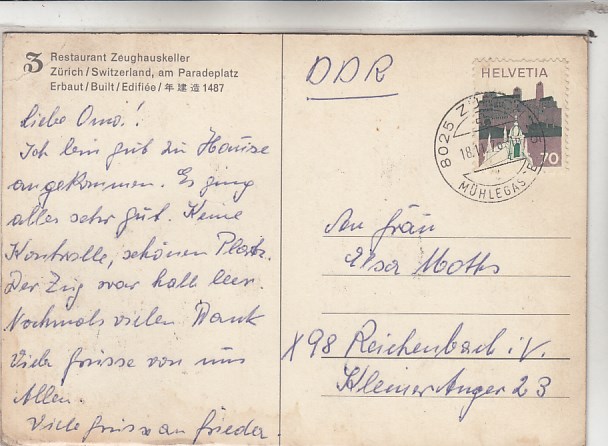 3 Restaurant Zeughauskeller
Zürich/Switzerland, am Paradeplatz
Erbaut/Built/Edifiée/年建造 1487
Liebe Omi!
Ich bin gut zu Hause
angekommen. Es ging
alles sehr gut. Keine
Kontrolle, schönen Platz.
Der Zug war halb leer.
Nochmals vielen Dank
Viele Grüsse von uns
Allen.
Viele Grüsse an Frieder.
DDR
HELVETIA
70
8025 ZÜ
18.11.76
MÜHLEGASSE
An Frau
Elsa Moths
X 98 Reichenbach i.V.
Kleiner Anger 23